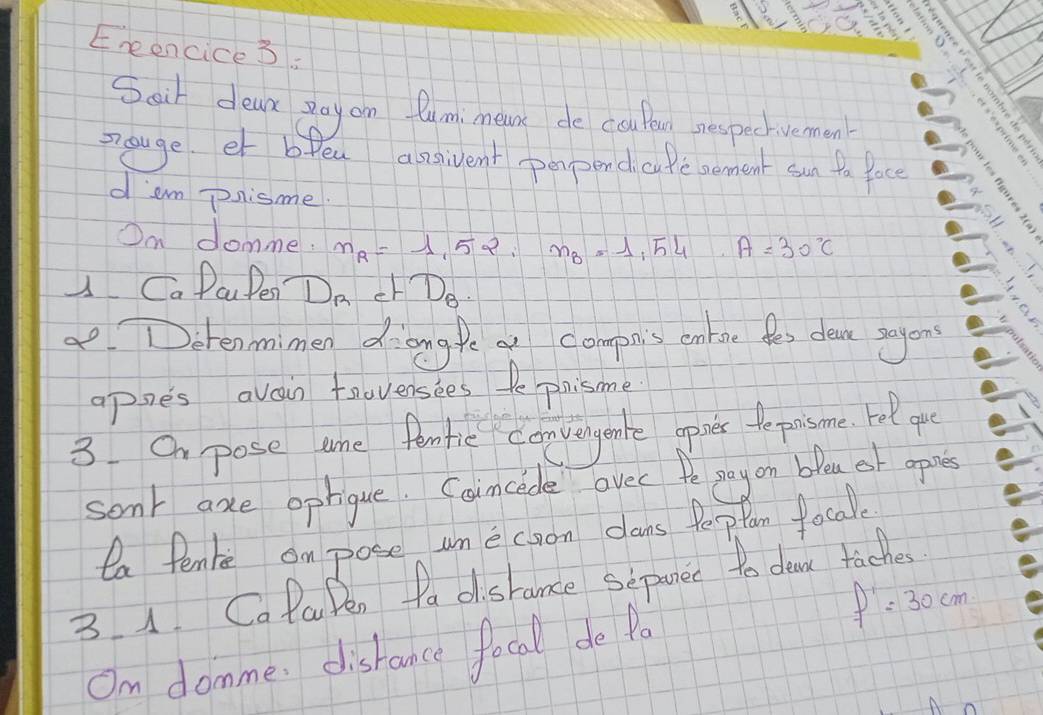 Exercice 3:
Soit deux rayon lumineux de couleur respectivement
rouge. et bleu arrivent perpendiculérement sur la face
d'un prisme.
On donne. nR = 1,52. nB = 1,54. A = 30°C
1_ Calculer DR et DB.
2_ Déterminer l'angle α compris entre les deux rayons
aprés avoir traversées le prisme.
3_ On pose une lentie convergente aprés le prisme. tel que
sont axe optique. Coincéde avec le rayon bleu et aprés
la lentie on pose un écron dans le plan focale.
3_1. Calculer la distance séparée les deux tâches.
On donne. distance focal de la f' = 30 cm.